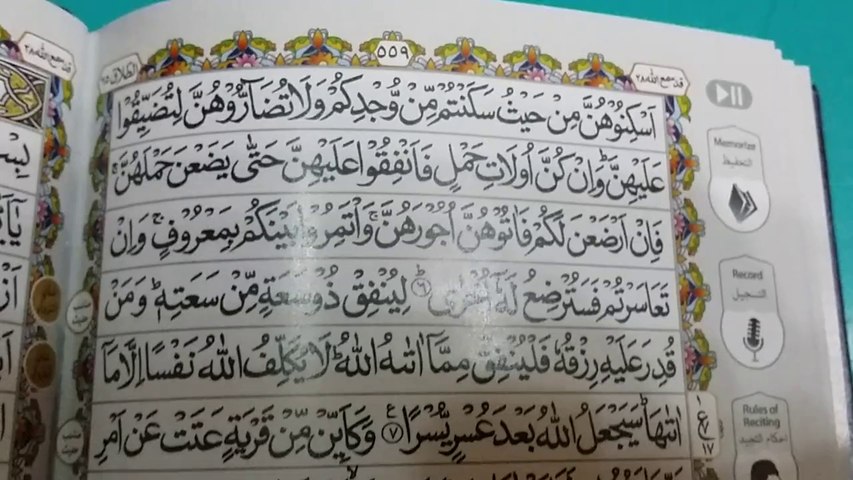 قد سمع الله ٢٨
الطلاق ٦٥
٥٥٩
قد سمع الله ٢٨
اَسْكِنُوْهُنَّ مِنْ حَيْثُ سَكَنْتُمْ مِّنْ وُّجْدِكُمْ وَلَا تُضَآرُّوْهُنَّ لِتُضَيِّقُوْا
عَلَيْهِنَّ ؕ وَاِنْ كُنَّ اُولَاتِ حَمْلٍ فَاَنْفِقُوْا عَلَيْهِنَّ حَتّٰى يَضَعْنَ حَمْلَهُنَّ ۚ
فَاِنْ اَرْضَعْنَ لَكُمْ فَاٰتُوْهُنَّ اُجُوْرَهُنَّ ۚ وَاْتَمِرُوْا بَيْنَكُمْ بِمَعْرُوْفٍ ۚ وَاِنْ
تَعَاسَرْتُمْ فَسَتُرْضِعُ لَهٗۤ اُخْرٰى ؕ ﴿۶﴾ لِيُنْفِقْ ذُوْ سَعَةٍ مِّنْ سَعَتِهٖ ؕ وَمَنْ
قُدِرَ عَلَيْهِ رِزْقُهٗ فَلْيُنْفِقْ مِمَّاۤ اٰتٰىهُ اللّٰهُ ؕ لَا يُكَلِّفُ اللّٰهُ نَفْسًا اِلَّا مَاۤ
اٰتٰىهَا ؕ سَيَجْعَلُ اللّٰهُ بَعْدَ عُسْرٍ يُّسْرًا ﴿۷﴾ وَكَاَيِّنْ مِّنْ قَرْيَةٍ عَتَتْ عَنْ اَمْرِ
ع
١٧
Memorize
التحفيظ
Record
التسجيل
Rules of
Reciting
احكام التجويد